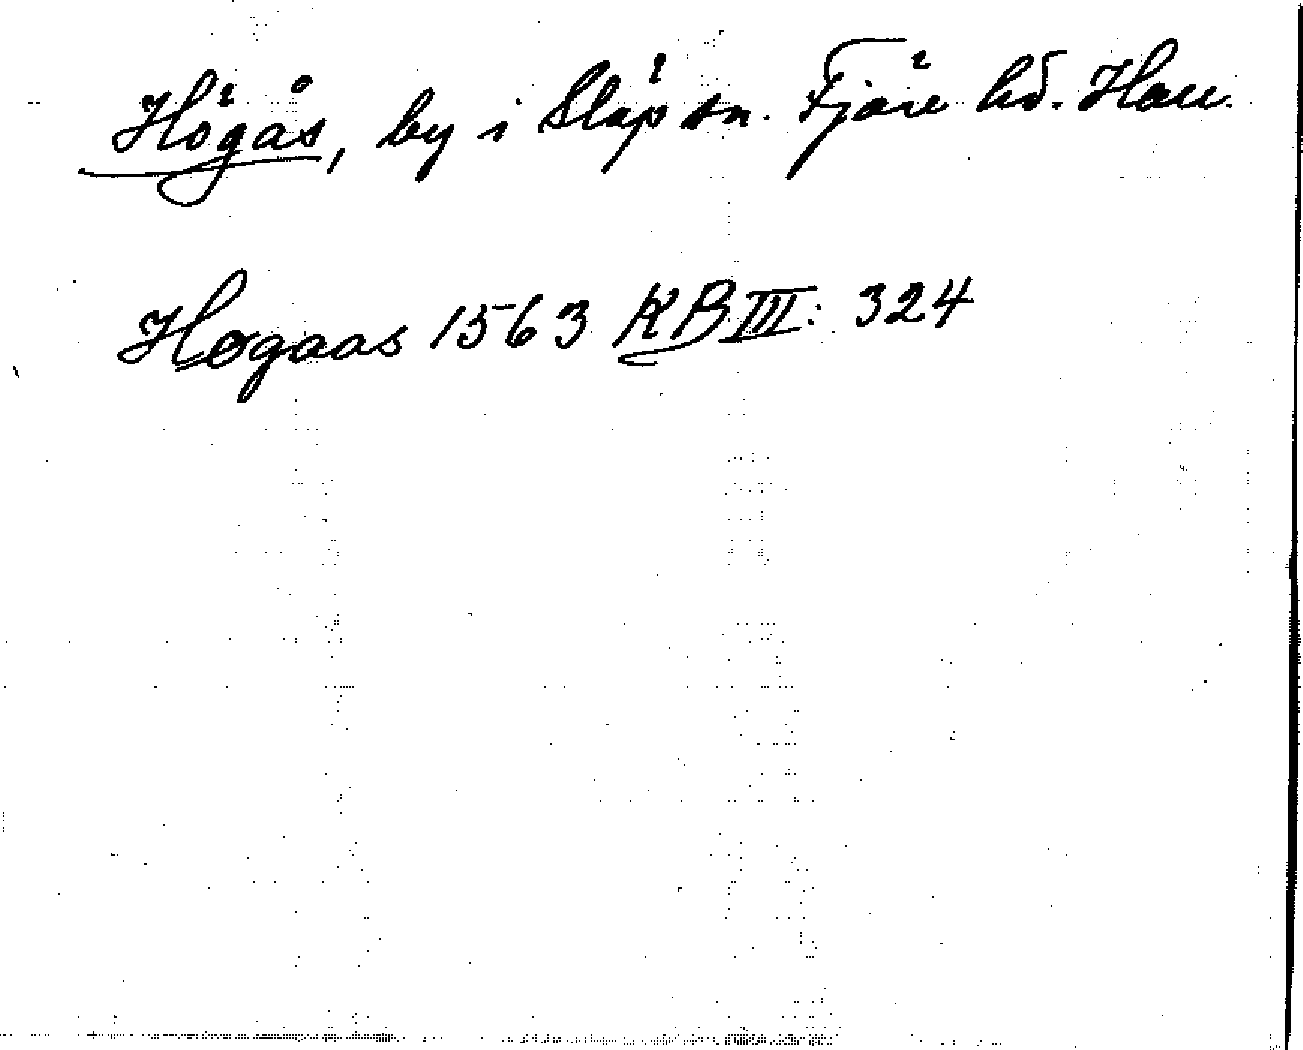 Högås, by i Släp sn. Fjäre hd. Hall.
Høgaas 1563 KB III: 324